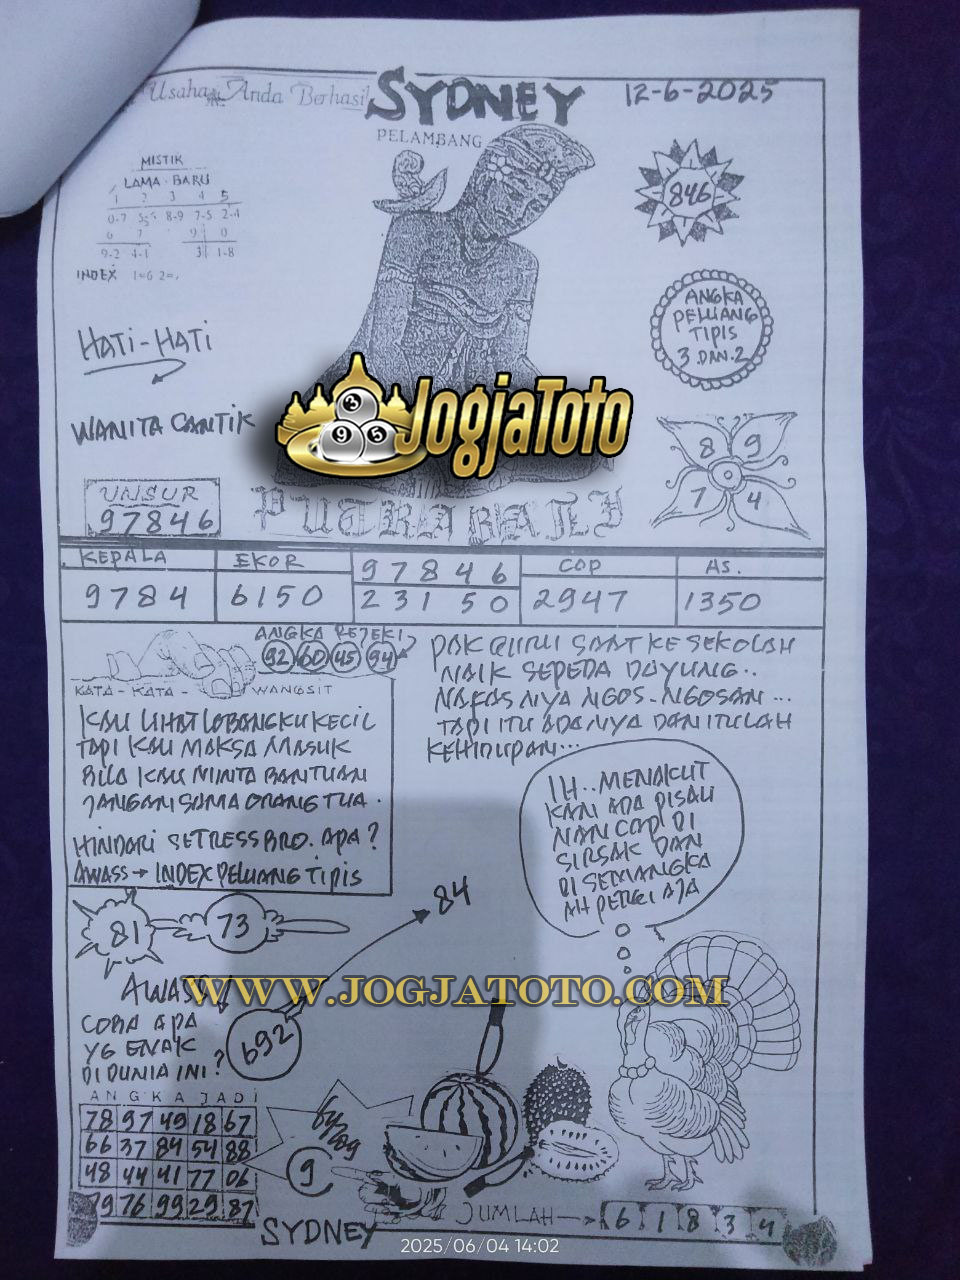 Usaha Anda Berhasil
SYDNEY
12-6-2025
PELAMBANG
MISTIK
LAMA - BARU
1 2 3 4 5
0-7 8-9 7-5 2-4
6 7 9 0
9-2 4-1 3 1-8
INDEX 1=6 2=7
846
ANGKA
PELUANG
TIPIS
3 DAN 2
HATI-HATI
WANITA CANTIK
3
9 5
JogjaToto
8 9
7 4
UNSUR
97846
PUTRA BALI
KEPALA EKOR 97846 COP AS.
9784 6150 23150 2947 1350
ANGKA REJEKI
92 60 45 94
KATA - KATA - WANGSIT
PAK GURU SAAT KE SEKOLAH
NAIK SEPEDA DAYUNG..
NAFAS NYA NGOS-NGOSAN...
TAPI ITU ADANYA DAN ITULAH
KEHIDUPAN...
KAU LIHAT LOBANGKU KECIL
TAPI KAU MAKSA MASUK
BILA KAU MINTA BANTUAN
JANGAN SAMA ORANG TUA.
HINDARI SETRESS BRO. APA?
AWASS → INDEX PELUANG TIPIS
IH..MENAKUT
KAN ADA PISAU
NANCAP DI
SIRSAK DAN
DI SEMANGKA
AH PERGI AJA
81 73
84
AWASS
WWW.JOGJATOTO.COM
COBA APA
YG ENAK
DI DUNIA INI?
692
ANGKA JADI
78 97 49 18 67
66 37 84 54 88
48 44 41 77 06
79 76 99 29 87
9
SYDNEY
JUMLAH → 6 1 8 3 4
2025/06/04 14:02